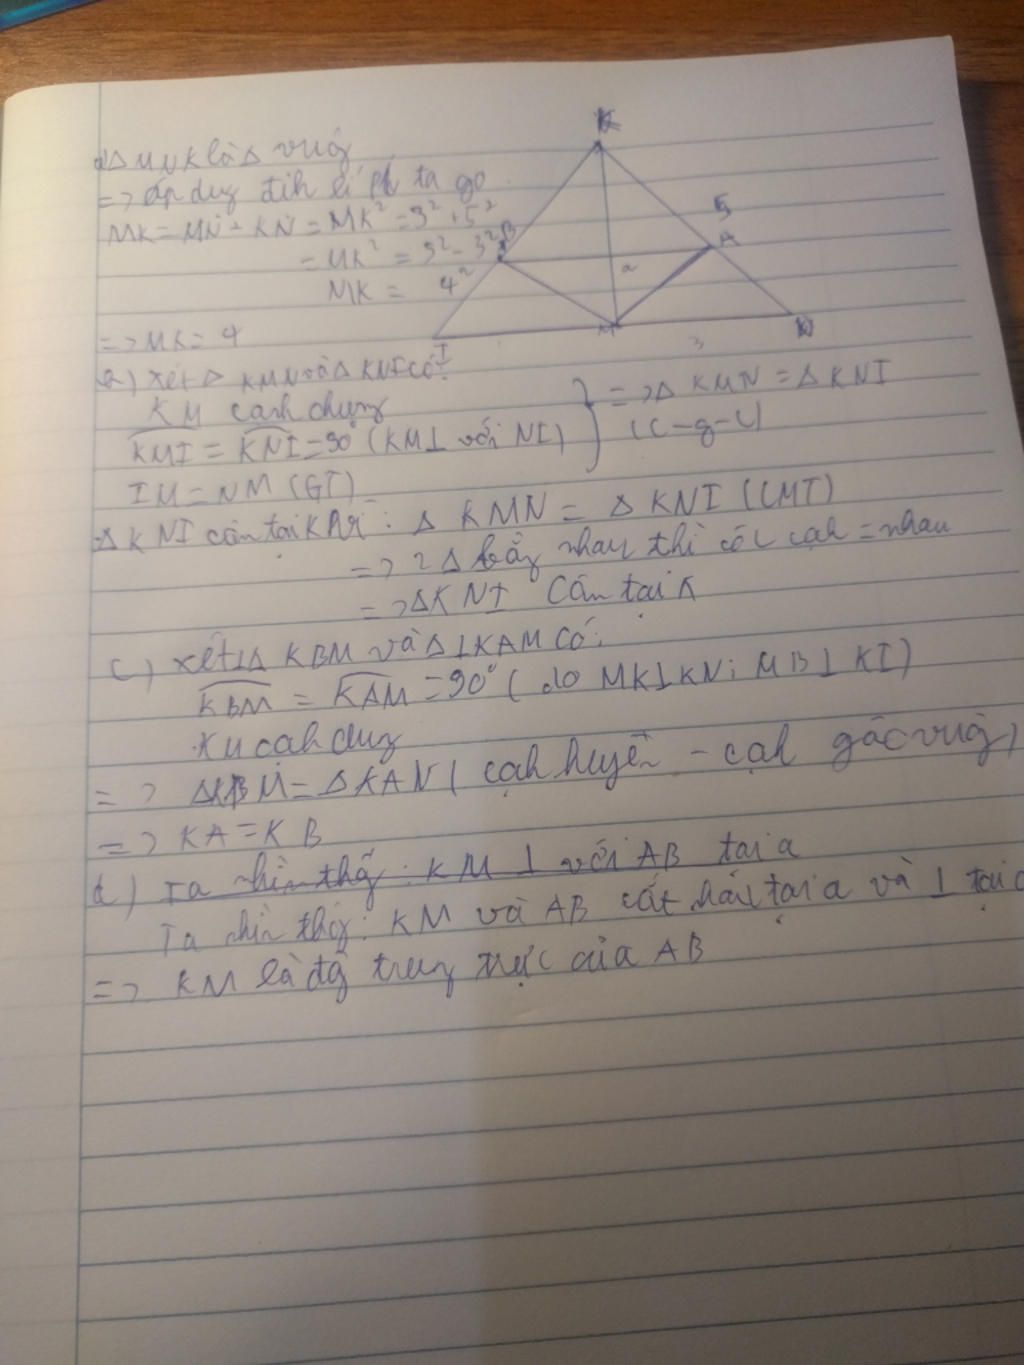 K
5
A
B
a
I
M
3
N
Δ MNK là Δ vuôg
=> áp dug đih lí ta go
MK = MN - KN = MK² = 3² + 5²
= MK² = 3² - 3²
MK = 4²
=> MK = 4
a) xét Δ KMN và Δ KNI có:
KM cạnh chug
KMI = KNI = 90° (KM⊥ với NI)
IM = NM (GT)
=> Δ KMN = Δ KNI
(c-g-c)
Δ KNI cân tại K Vì: Δ KMN = Δ KNI (CMT)
=> 2 Δ bằg nhau thì có cạh = nhau
=> ΔKNI Cân tại K
c) xét ⊥Δ KBM và Δ⊥KAM Có:
KBM = KAM = 90° (do MK⊥KN; MB⊥KI)
KM cạh chug
=> ΔKBM = ΔKAN (cạh huyền - cạh góc vuôg)
=> KA = KB
d) Ta nhìn thấy: KM ⊥ với AB tại a
Ta nhìn thấy: KM và AB cắt nhau tại a và ⊥ tại a
=> KM là đg trung trực của AB